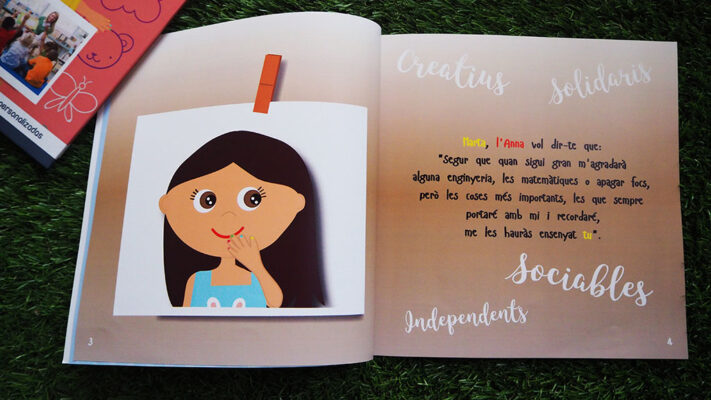 personalizadas
3
Creatius
Solidaris
Marta, l'Anna vol dir-te que:
"Segur que quan sigui gran m'agradarà
alguna enginyeria, les matemàtiques o apagar focs,
però les coses més importants, les que sempre
portaré amb mi i recordaré,
me les hauràs ensenyat tu".
Sociables
Independents
4